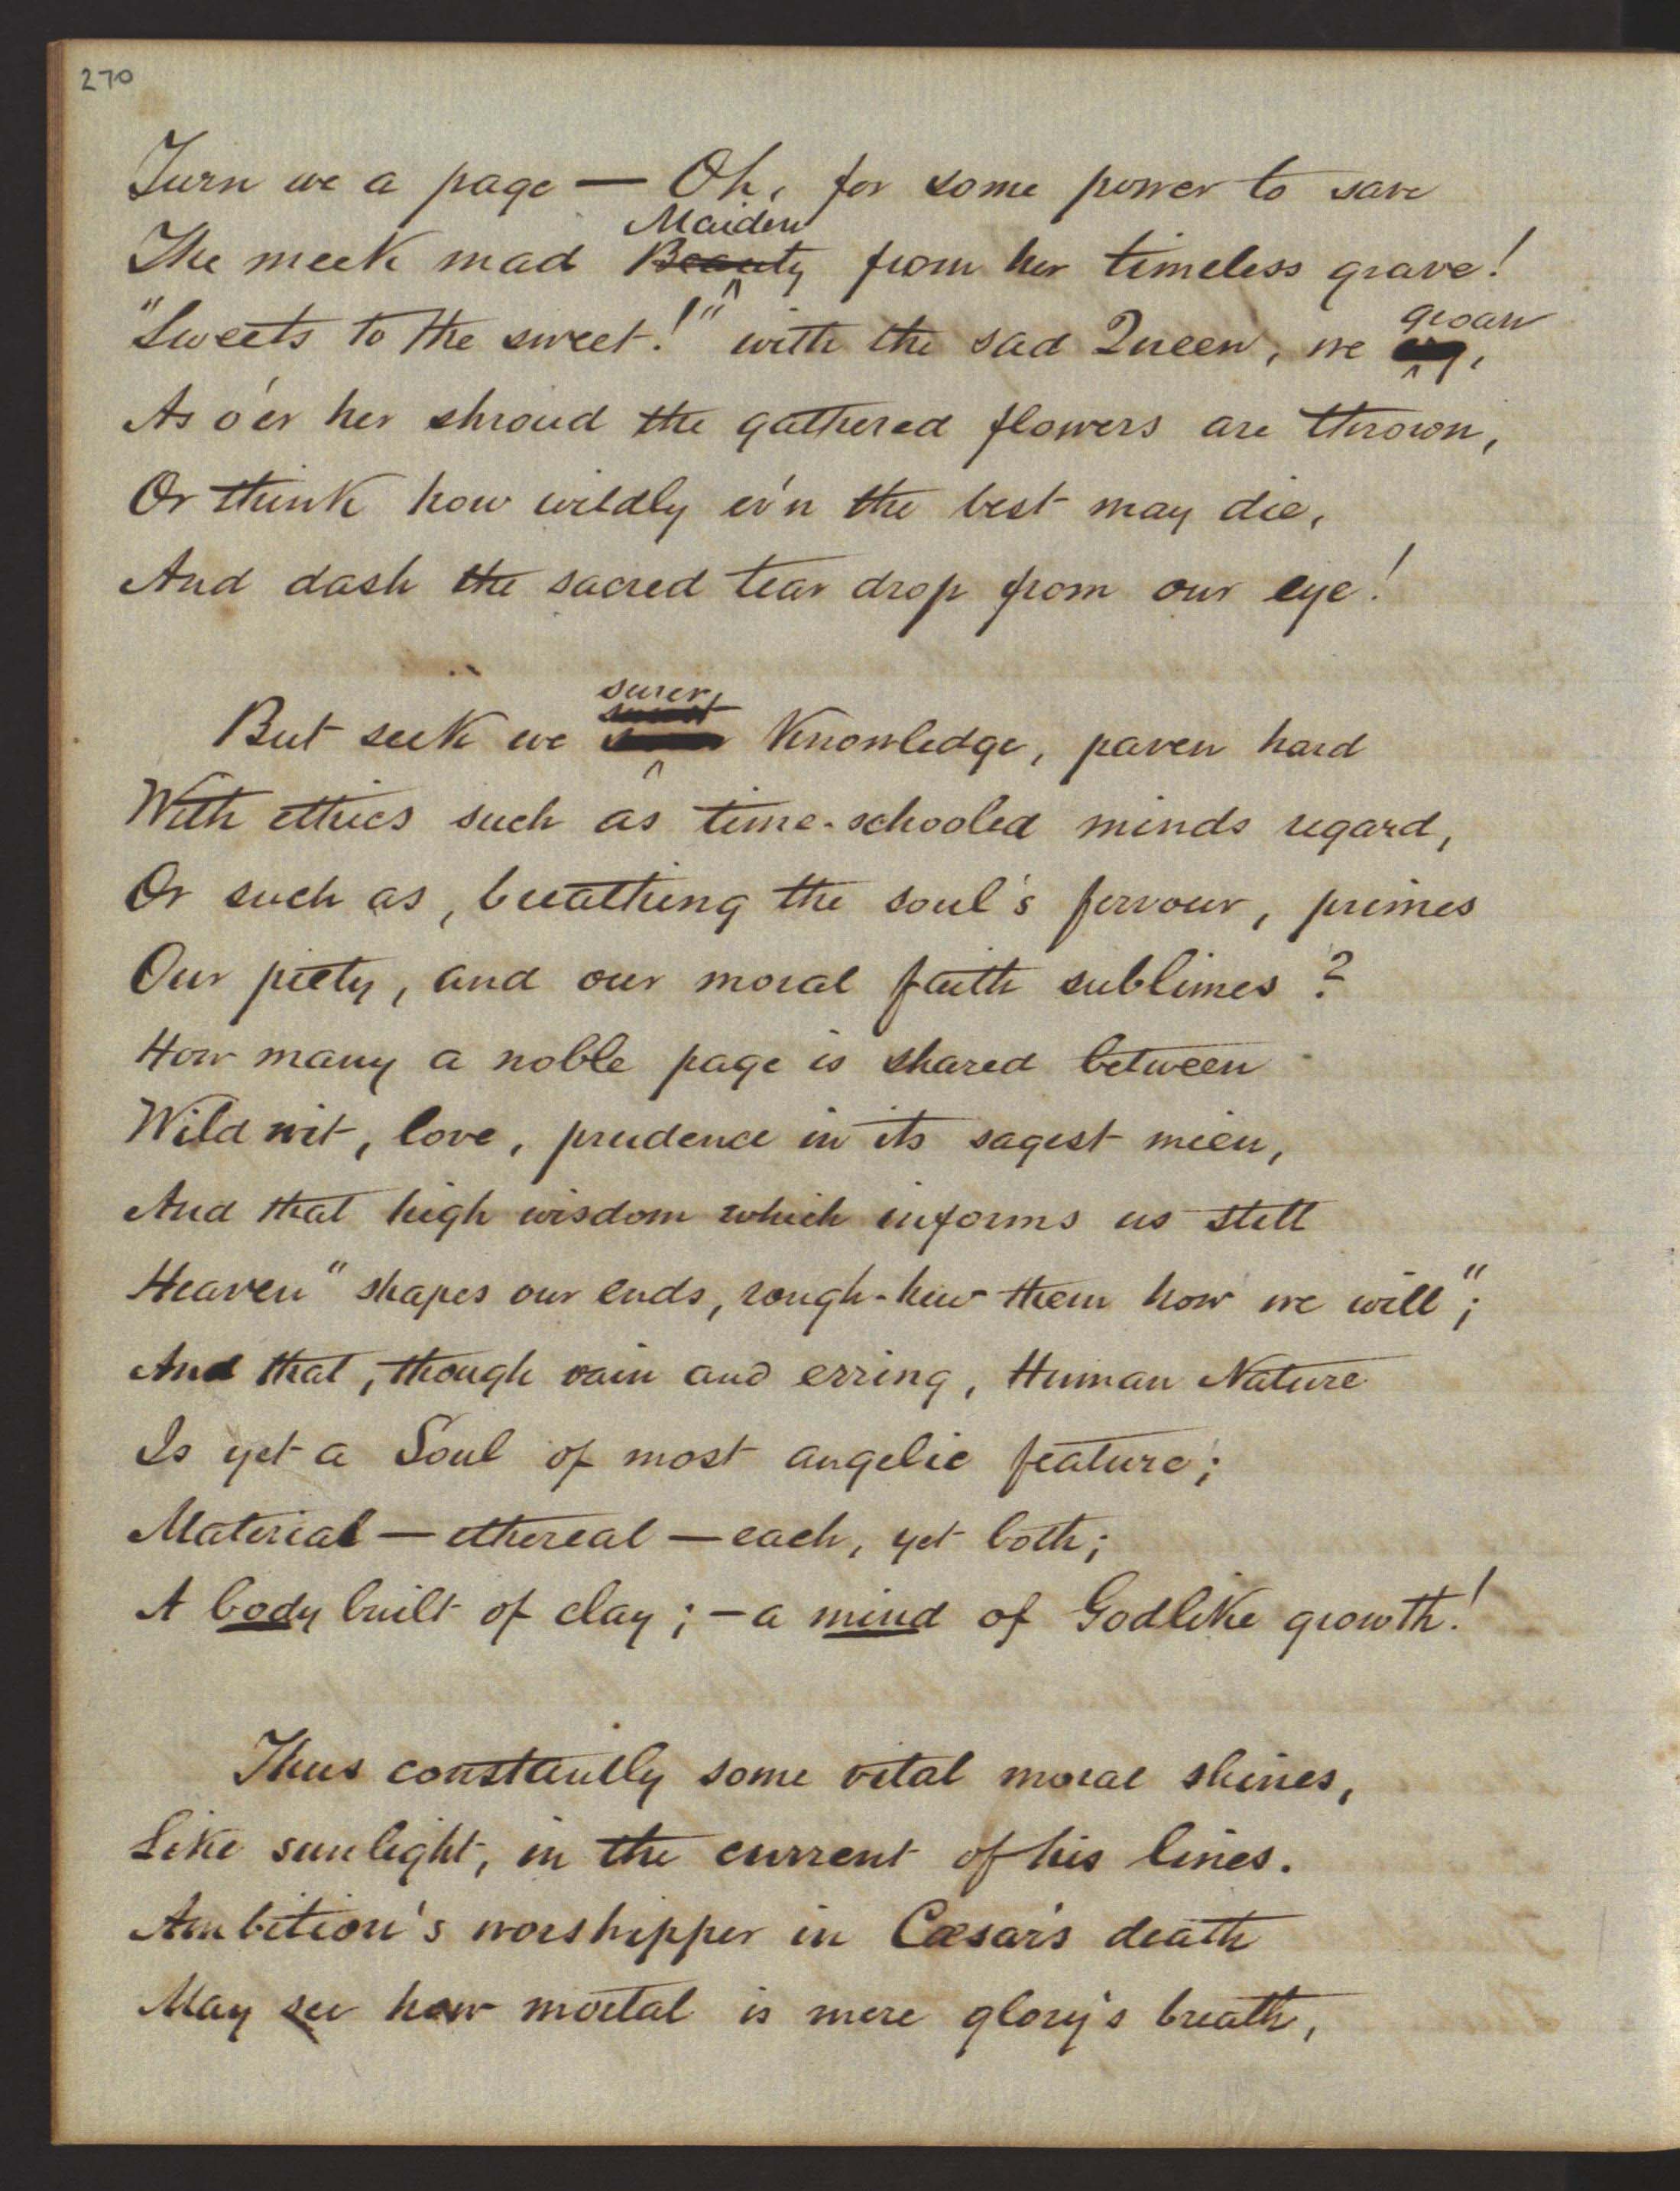 270
Turn we a page — Oh, for some power to save
Maiden
The meek mad Beauty from her timeless grave!
groan
"Sweets to the sweet!" with the sad Queen, we
As o'er her shroud the gathered flowers are thrown,
Or think how wildly ev'n the best may die,
And dash the sacred tear drop from our eye!
surer,
But seek we Knowledge, paven hard
With ethics such as time-schooled minds regard,
Or such as, breathing the soul's fervour, primes
Our piety, and our moral faith sublimes?
How many a noble page is shared between
Wild wit, love, prudence in its sagest mien,
And that high wisdom which informs us still
Heaven "shapes our ends, rough-hew them how we will";
And that, though vain and erring, Human Nature
Is yet a Soul of most angelic feature;
Material — ethereal — each, yet both;
A body built of clay; – a mind of Godlike growth!
Thus constantly some vital moral shines,
Like sunlight, in the current of his lines.
Ambition's worshipper in Cæsar's death
May see how mortal is mere glory's breath,